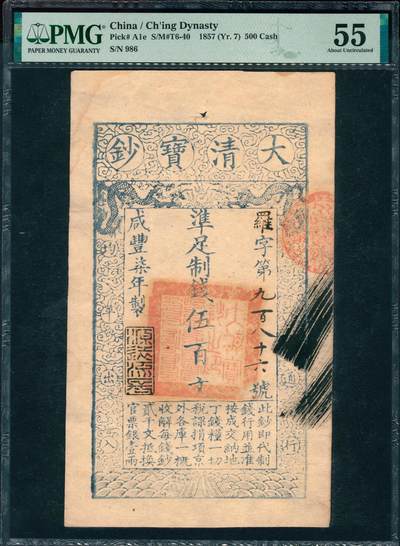 PMG
PAPER MONEY GUARANTY
China / Ch'ing Dynasty
Pick# A1e S/M#T6-40 1857 (Yr. 7) 500 Cash
S/N 986
55
About Uncirculated
大清寶鈔
羅字第九百八十六號
準足制錢伍百文
咸豐柒年製
此鈔即代制
錢行用並准
按成交納地
丁錢糧一切
稅課捐項京
外各庫一概
收解每錢鈔
貳千文抵換
官票銀壹兩